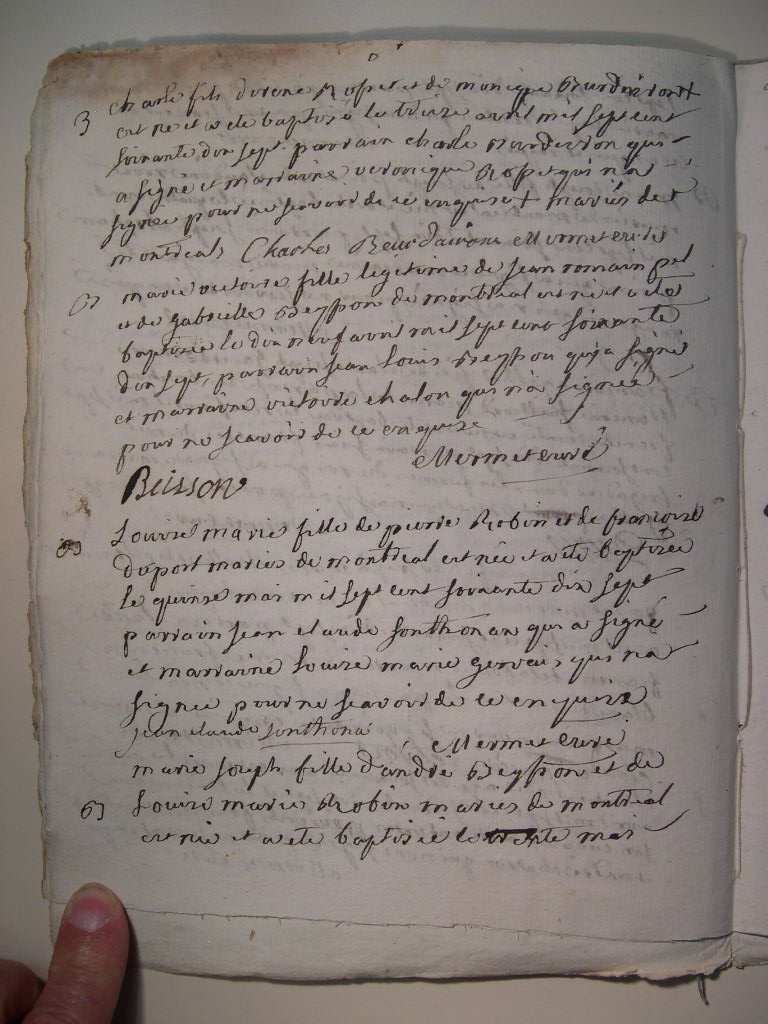 charle fils de rene Rosset et de monique Burdeiron
est né et a ete baptisé le treize avril mil sept cent
soixante dix sept. parrain charle Burdeiron qui
a signé et marraine veronique Rosset qui n'a
signée pour ne scavoir de ce enquise + mariés de
montreal Charles Mermet curé
marie victoire fille legitime de jean romain
et de gabriëlle Beysson de montreal est né et a ete
baptisée le dix neuf avril mil sept cent soixante
dix sept, parrain jean louis Beysson qui a signé
et marraine victoire chalon qui n'a signeé
pour ne scavoir de ce enquise
Mermet curé
Beisson
3 Louise marie fille de pierre Robin et de françoise
duport mariés de montreal est née et a ete baptisée
le quinze mai mil sept cent soixante dix sept
parrain jean claude sonthonax qui a signé
et marraine louise marie gervais qui n'a
signée pour ne scavoir de ce enquise
jean claude sonthona Mermet curé
marie joseph fille d'andré Beysson et de
Louise marie Robin mariés de montreal
est née et a ete baptisée le trente mai